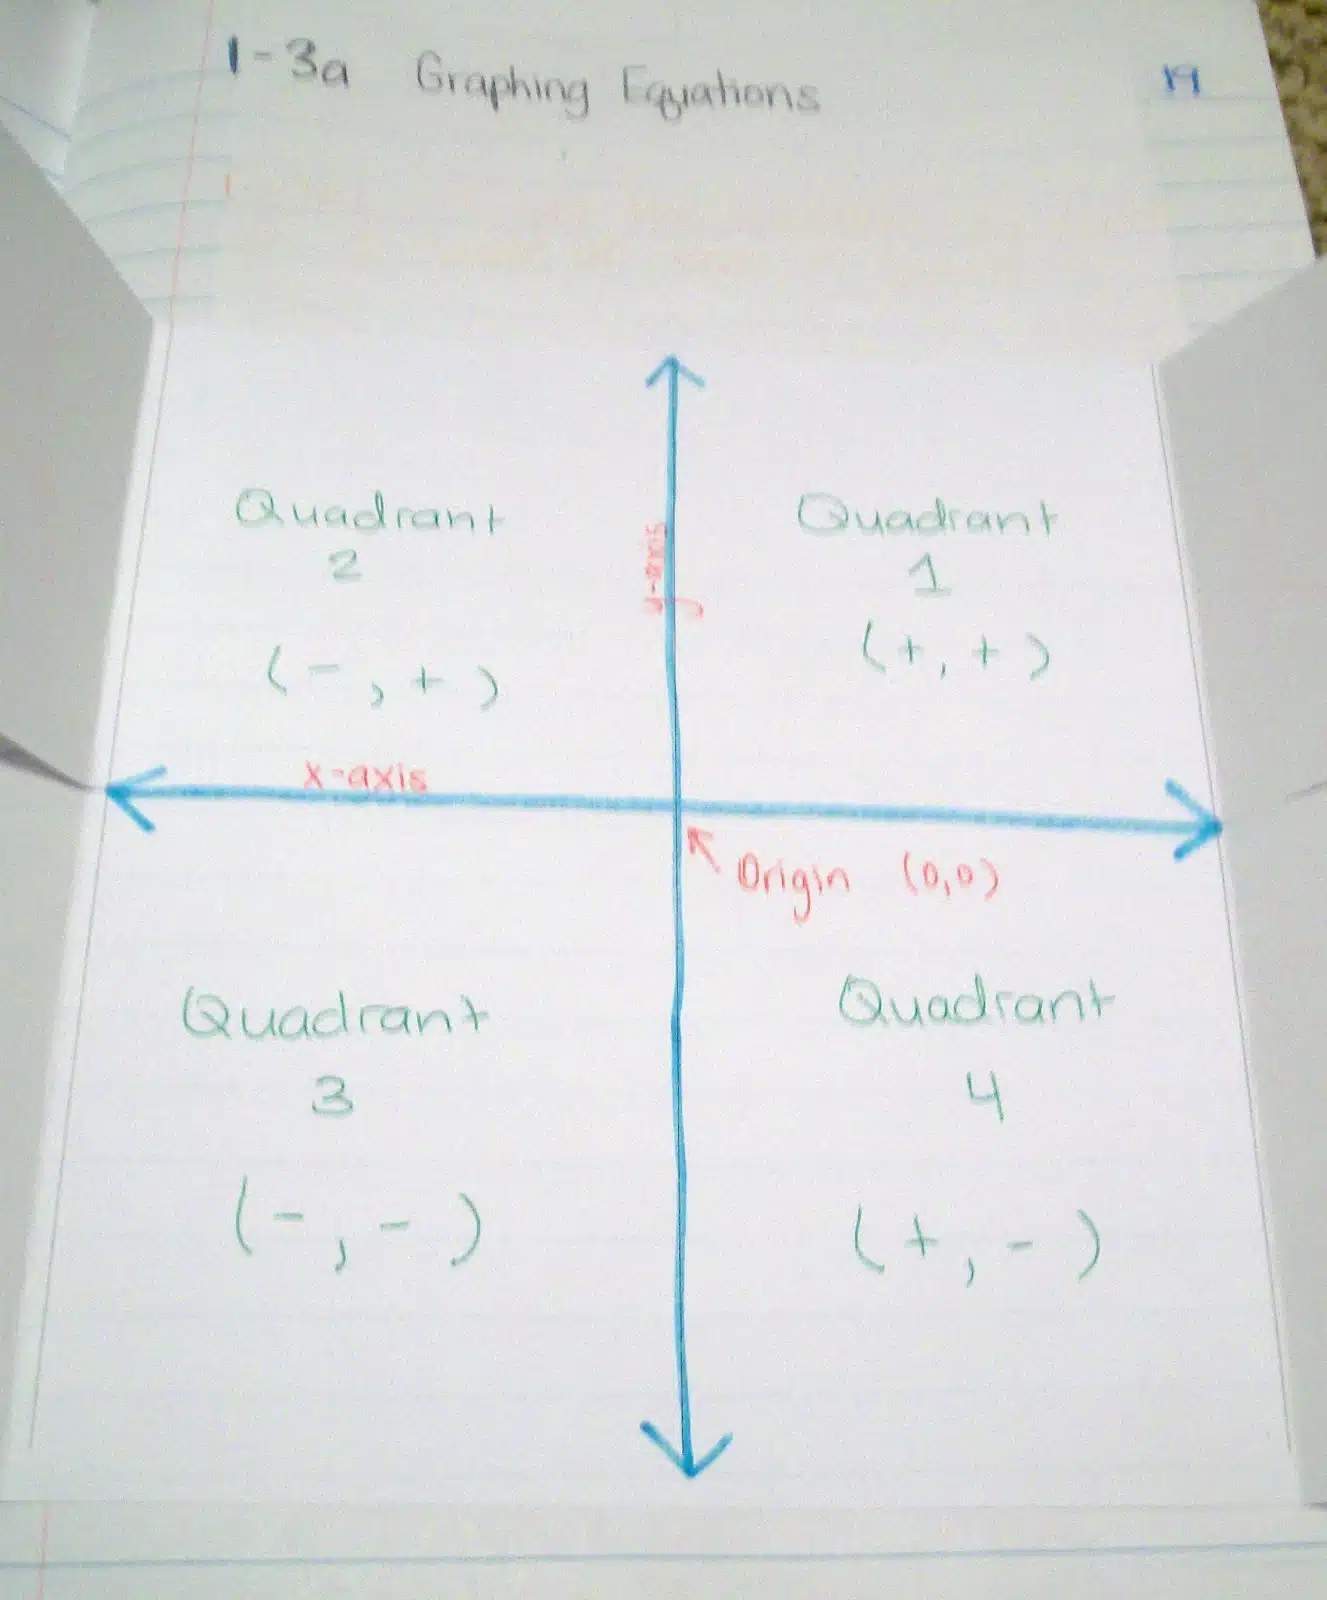 1-3a Graphing Equations
19
Quadrant
2
(-,+)
Quadrant
1
(+,+)
y-axis
x-axis
Origin (0,0)
Quadrant
3
(-,-)
Quadrant
4
(+,-)